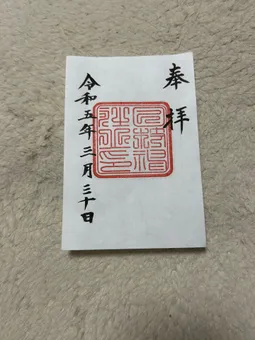 奉拝
令和五年三月三十日